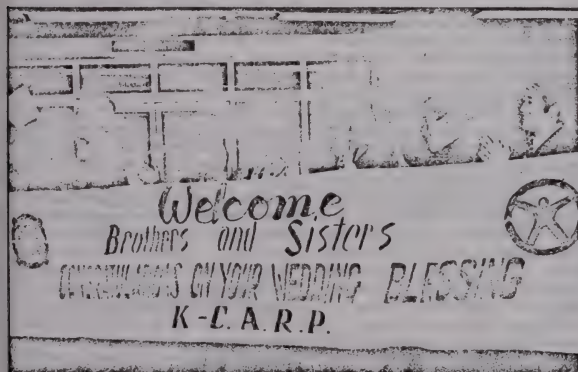 Welcome
Brothers and Sisters
CONGRATULATIONS ON YOUR WEDDING BLESSING
K-C.A.R.P.